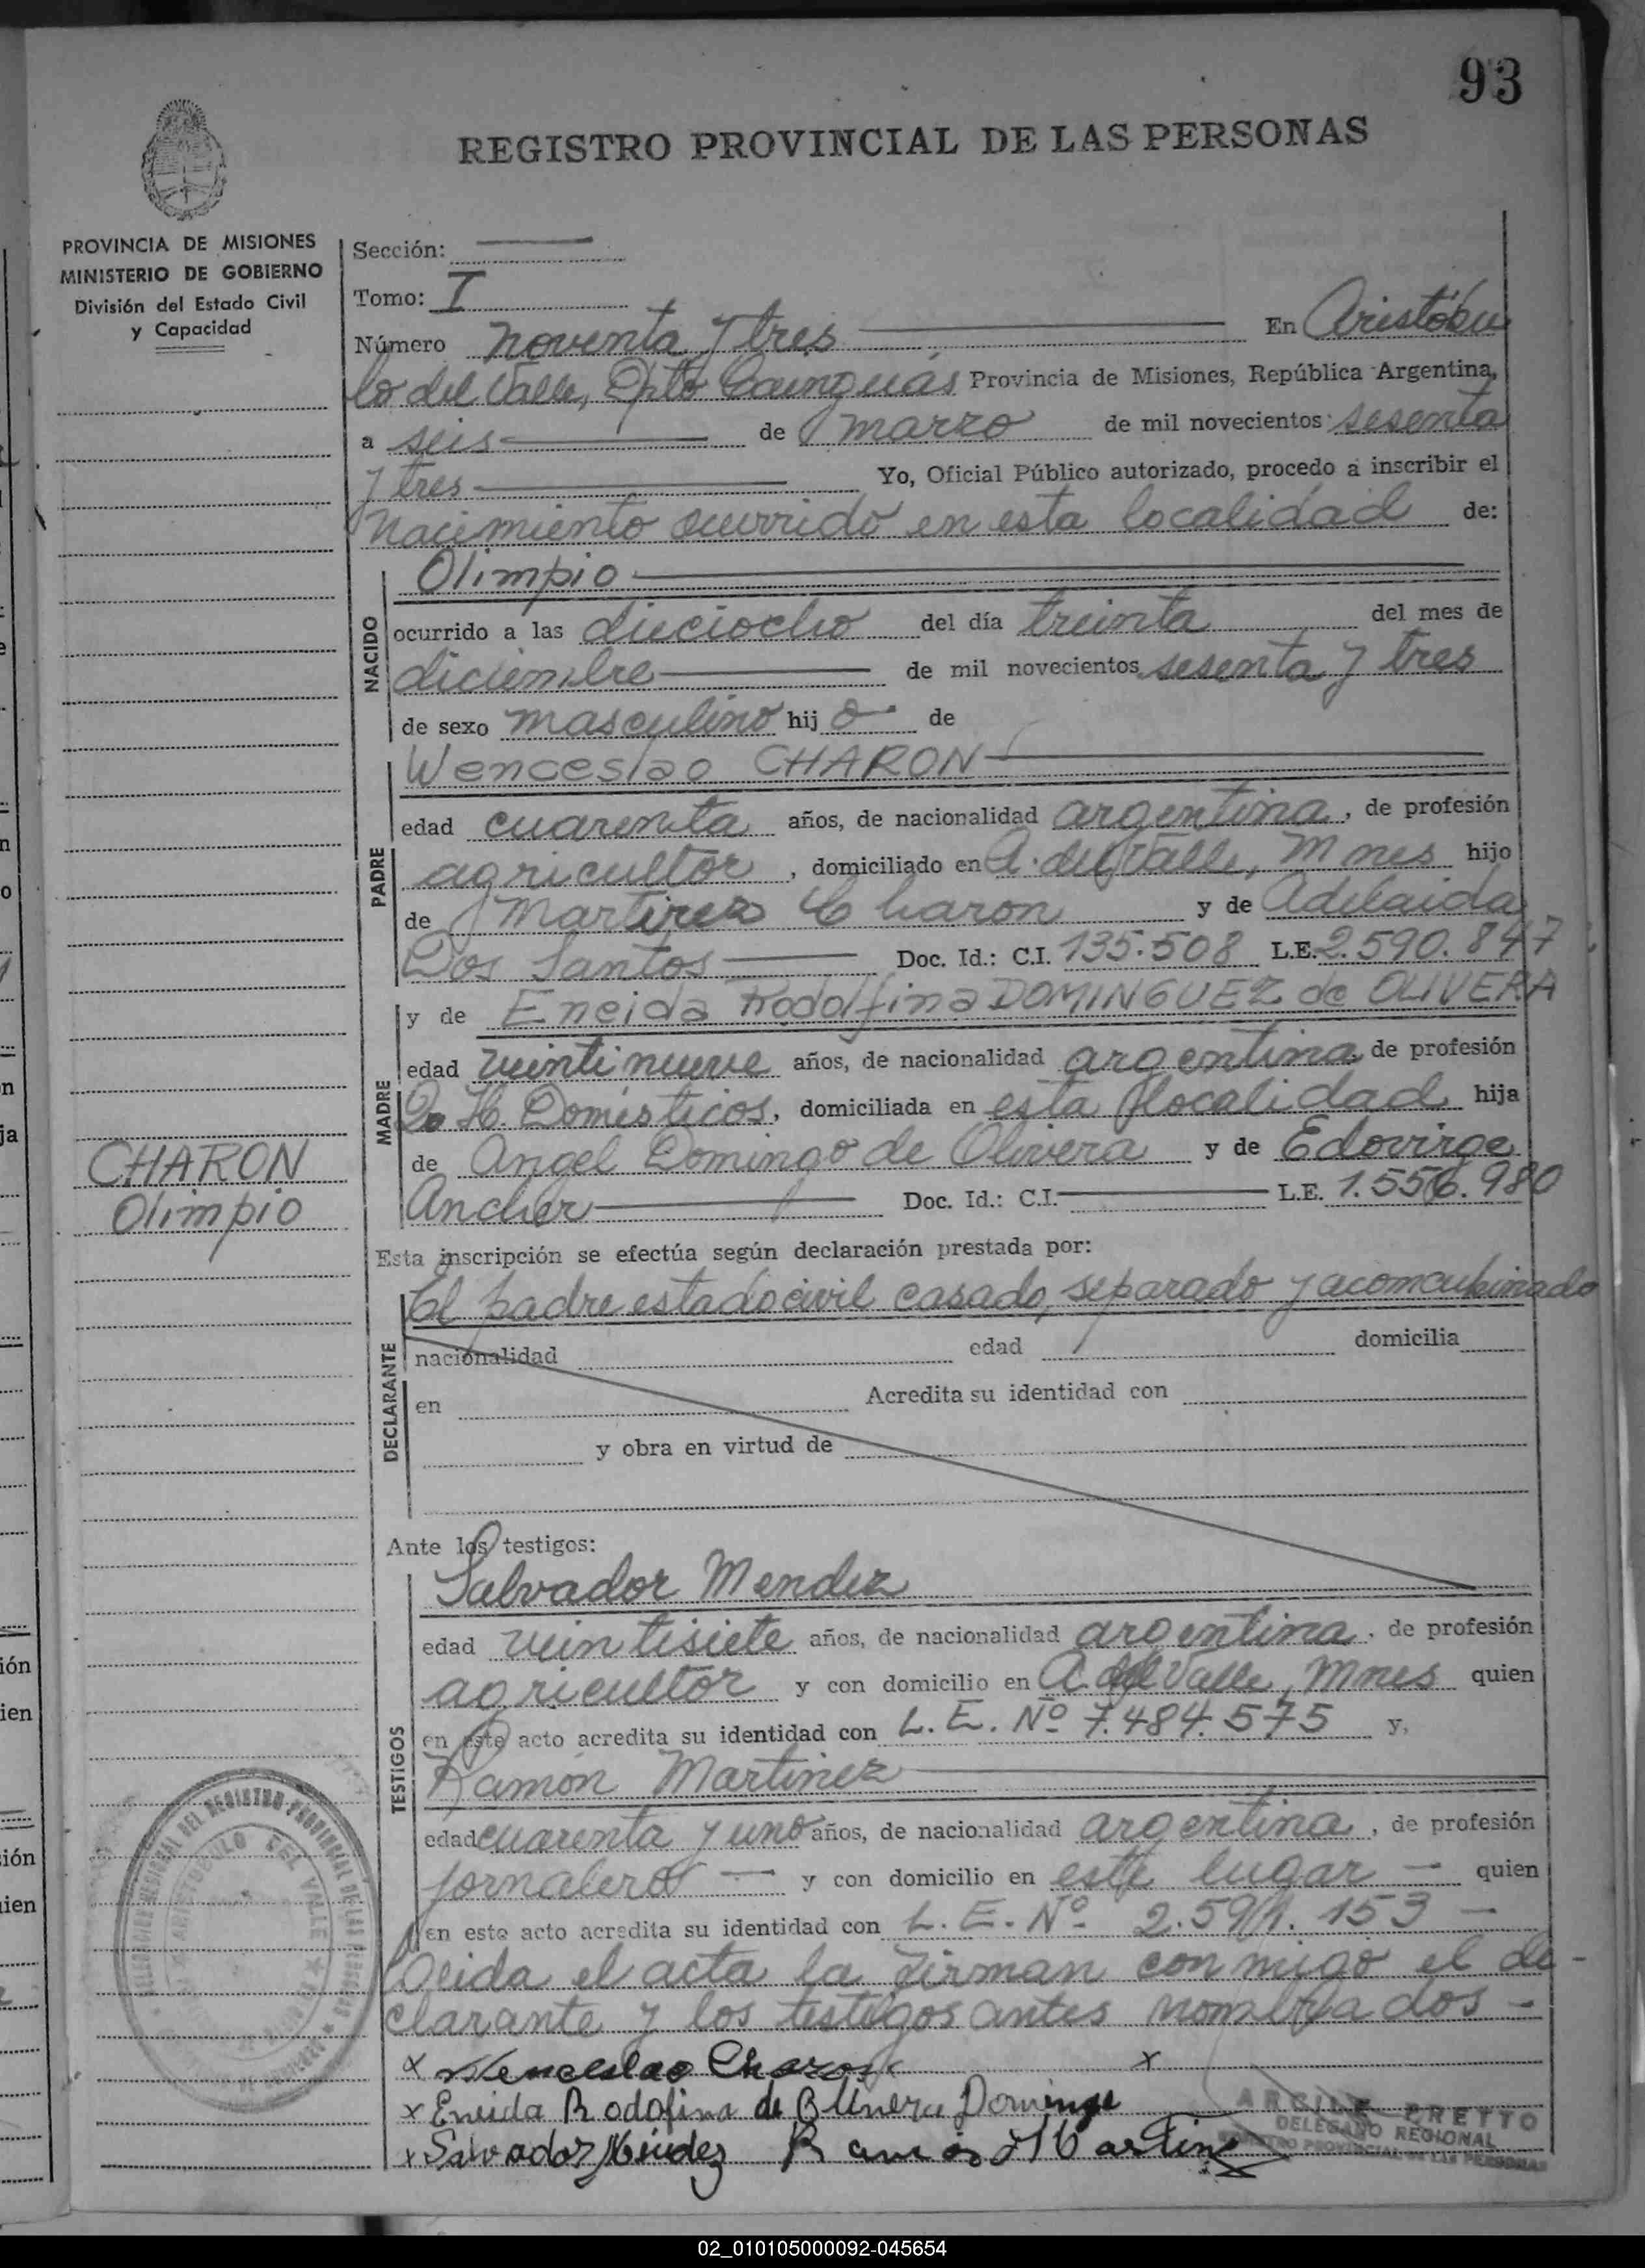 93
REGISTRO PROVINCIAL DE LAS PERSONAS
PROVINCIA DE MISIONES
MINISTERIO DE GOBIERNO
División del Estado Civil
y Capacidad
Sección:
Tomo: I
Número noventa y tres En Aristóbu
lo del Valle, Dpto Cainguás Provincia de Misiones, República Argentina,
a seis de marzo de mil novecientos sesenta
y tres Yo, Oficial Público autorizado, procedo a inscribir el
nacimiento ocurrido en esta localidad de:
NACIDO
Olimpio
ocurrido a las dieciocho del día treinta del mes de
diciembre de mil novecientos sesenta y tres
de sexo masculino hijo de
PADRE
Wenceslao CHARON
edad cuarenta años, de nacionalidad argentina, de profesión
agricultor, domiciliado en A. del Valle, Mnes hijo
de Martirez Charon y de Adelaida
Dos Santos Doc. Id.: C.I. 135.508 L.E. 2.590.847
MADRE
y de Eneida Rodolfina DOMINGUEZ de OLIVERA
edad veintinueve años, de nacionalidad argentina, de profesión
Q. H. Domésticos, domiciliada en esta localidad hija
de Angel Domingo de Olivera y de Edovirge
Ancher Doc. Id.: C.I. L.E. 1.556.980
CHARON
Olimpio
Esta inscripción se efectúa según declaración prestada por:
DECLARANTE
El padre estado civil casado, separado y aconcubinado
nacionalidad edad domicilia
en Acredita su identidad con
y obra en virtud de
Ante los testigos:
TESTIGOS
Salvador Mendez
edad veintisiete años, de nacionalidad argentina, de profesión
agricultor y con domicilio en A. del Valle, Mnes quien
en este acto acredita su identidad con L. E. Nº 7.484.575 y,
Ramón Martinez
edad cuarenta y uno años, de nacionalidad argentina, de profesión
jornalero y con domicilio en este lugar quien
en este acto acredita su identidad con L. E. Nº 2.591.153
Leida el acta la firman conmigo el de-
clarante y los testigos antes nombrados
x Wenceslao Charon x
x Eneida Rodofina de Olivera Domingu
x Salvador Méndez Ramón Martinez
PRETTO
DELEGADO REGIONAL
REGISTRO PROVINCIAL DE LAS PERSONAS
02_010105000092-045654